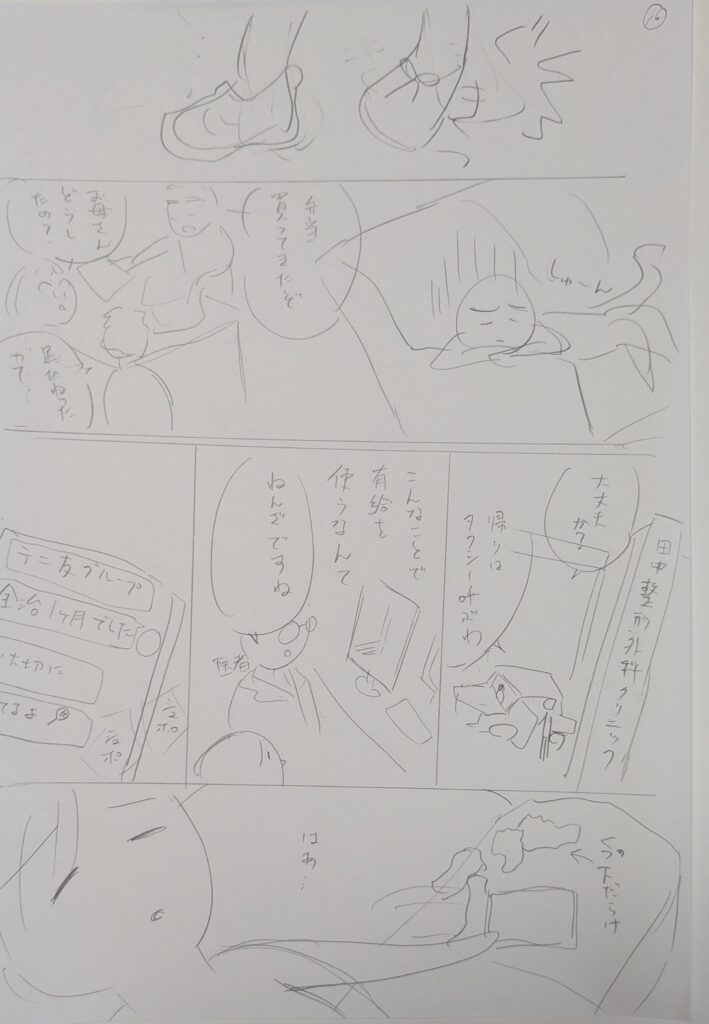 16
しゅーん
弁当
買ってきたぞ
お母さん
どうし
たの?
足ひねった
がて…
田中整形外科クリニック
大丈夫
か?
帰りは
タクシー呼ぶわ
こんなことで
有給を
使うなんて
ねんざですね
医者
テニ友グループ
全治1ヶ月でした
大切に
てるよ
シュポ
シュポ
はあ…
くつ下だらけ